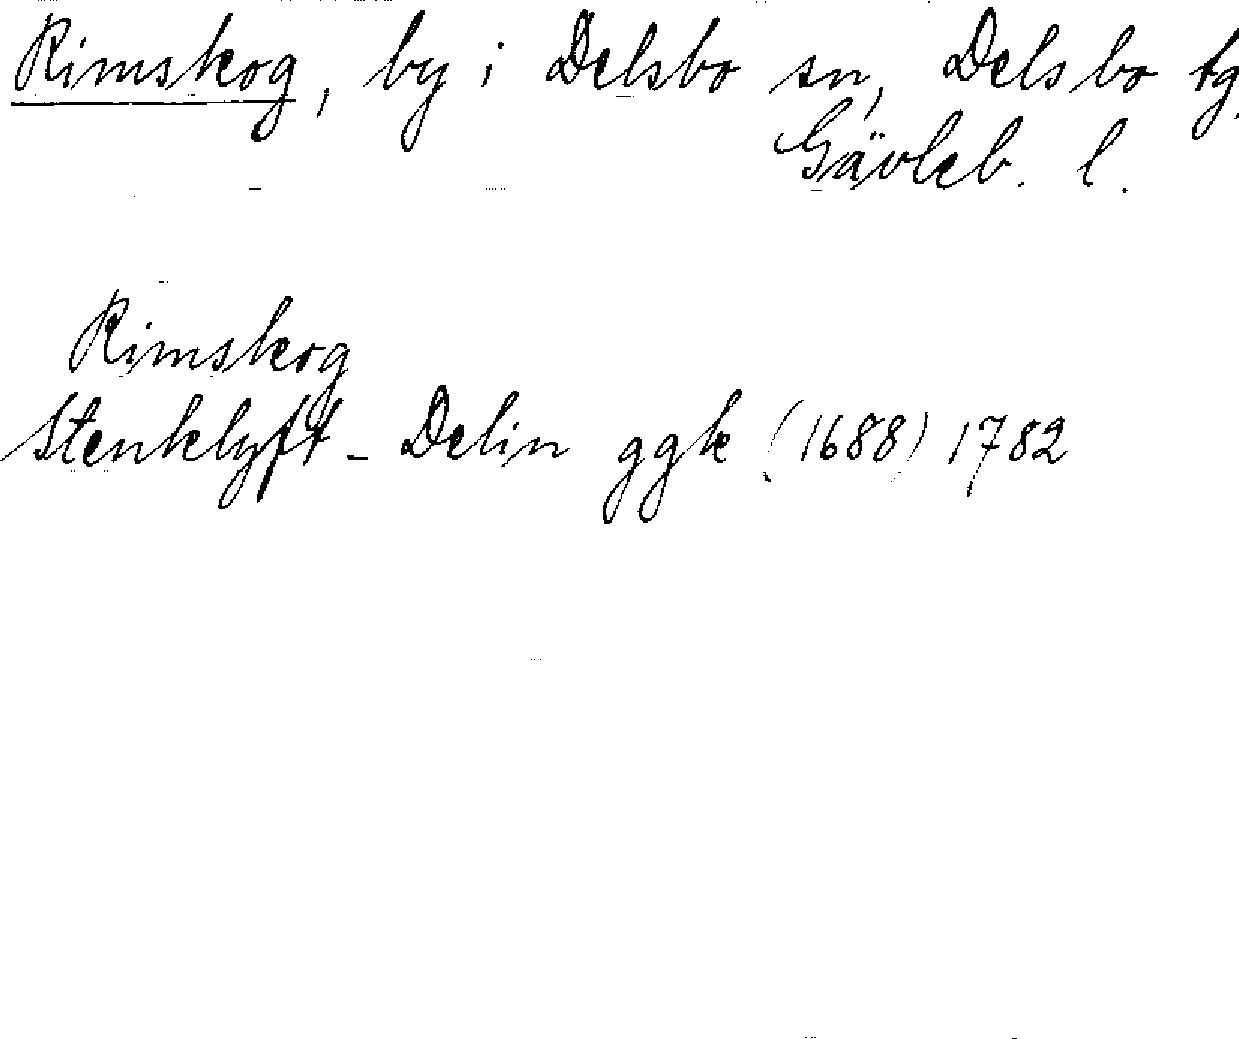 Rimskog, by i Delsbo sn, Delsbo tg,
Gävleb. l.
Rimskog
Stenklyft - Delin ggk (1688) 1782